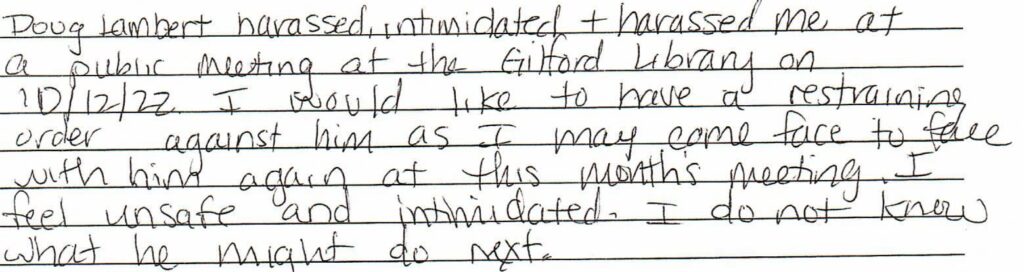 Doug Lambert harassed, intimidated + harassed me at
a public meeting at the Gilford Library on
10/12/22. I would like to have a restraining
order against him as I may come face to face
with him again at this month's meeting. I
feel unsafe and intimidated. I do not know
what he might do next.